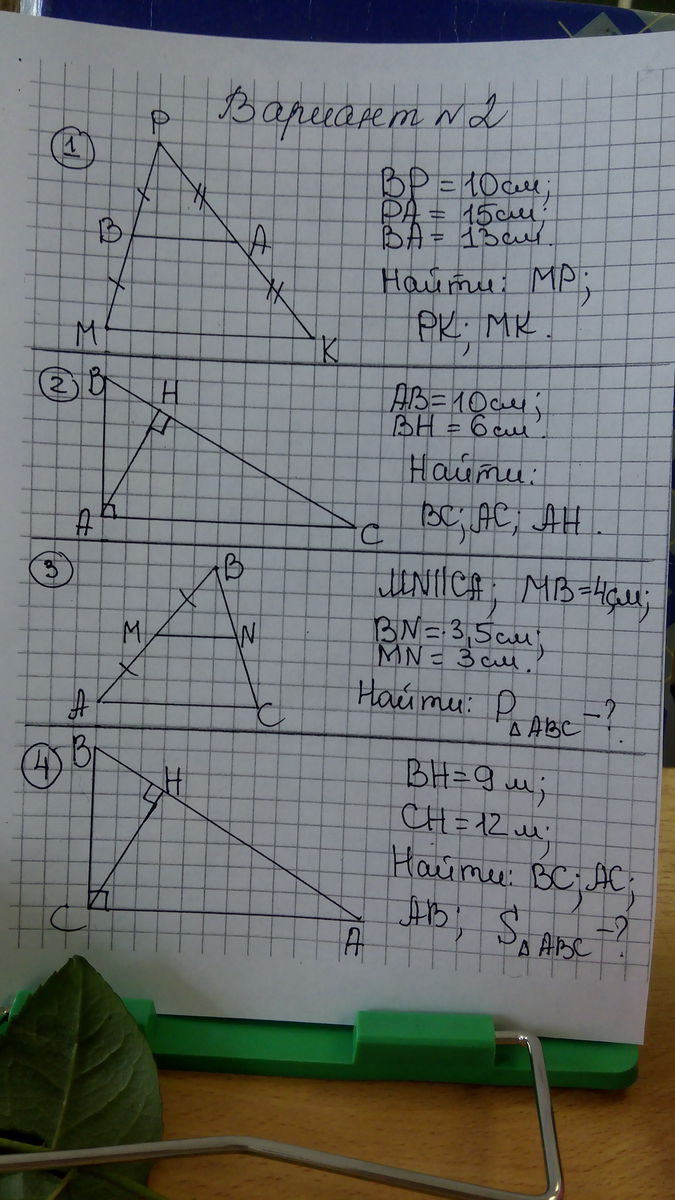 Вариант №2
1
P
B
A
M
K
BP = 10см;
PA = 15см;
BA = 13см.
Найти: MP;
PK; MK.
2
B
H
A
C
AB = 10см;
BH = 6см.
Найти:
BC; AC; AH.
3
B
M
N
A
C
MN||CA; MB=4см;
BN = 3,5см;
MN = 3см.
Найти: P△ABC -?
4
B
H
C
A
BH = 9м;
CH = 12м;
Найти: BC; AC;
AB; S△ABC -?